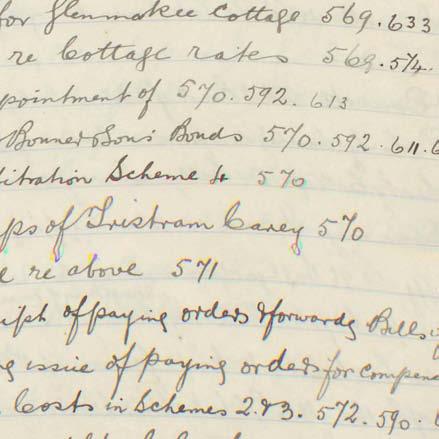 for Glenmakee Cottage 569.633
re Cottage rates 569.574.
pointment of 570.592.613
Bonner & Sons' Bonds 570.592.611.6
bitration Scheme 4 570
ps of Tristram Carey 570
re above 571
ipt of paying orders & forwardg Bills
g issue of paying orders for compen
Costs in Schemes 2.&3. 572.590.